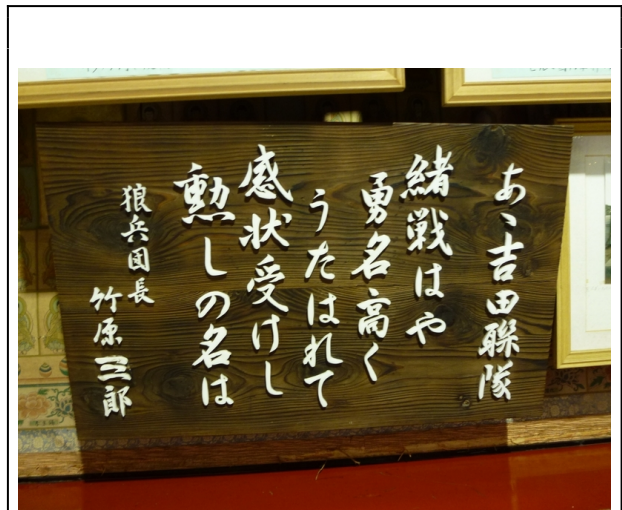 あゝ吉田聨隊
緒戦はや
勇名高く
うたはれて
感状受けし
勲しの名は
狼兵団長
竹原三郎